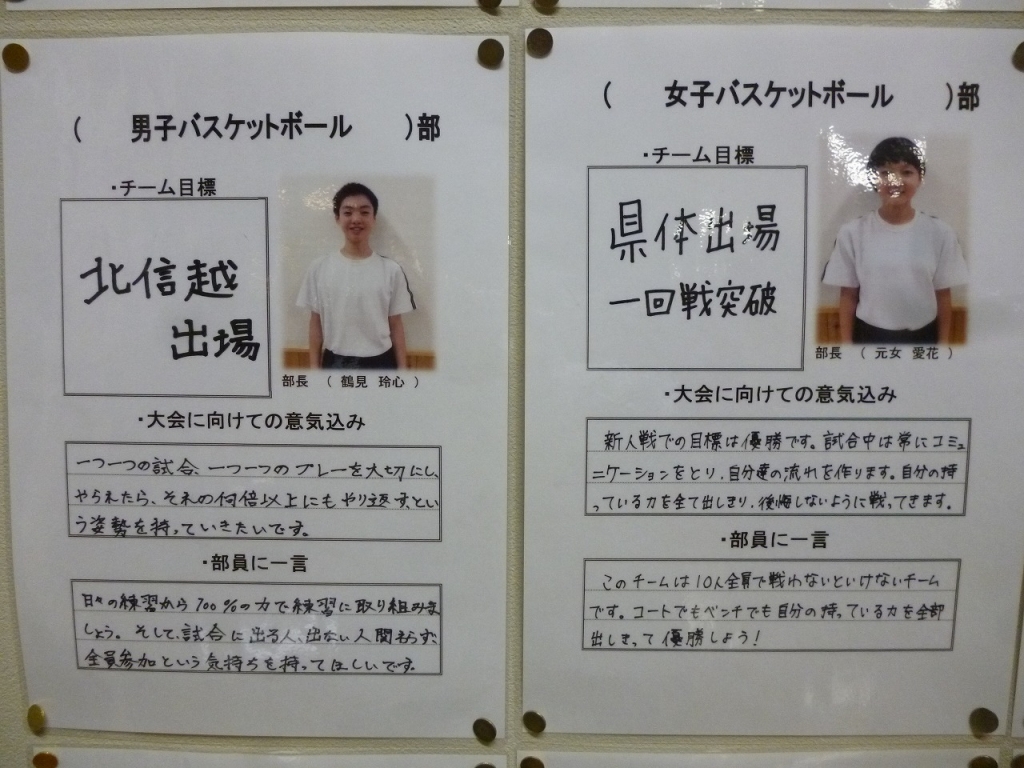 ( 男子バスケットボール )部
・チーム目標
北信越
出場
部長 ( 鶴見 玲心 )
・大会に向けての意気込み
一つ一つの試合、一つ一つのプレーを大切にし、
やられたら、それの何倍以上にもやり返す、とい
う姿勢を持っていきたいです。
・部員に一言
日々の練習から100%の力で練習に取り組みま
しょう。そして、試合に出る人、出ない人関わらず、
全員参加という気持ちを持ってほしいです。
( 女子バスケットボール )部
・チーム目標
県体出場
一回戦突破
部長 ( 元女 愛花 )
・大会に向けての意気込み
新人戦での目標は優勝です。試合中は常にコミュ
ニケーションをとり、自分達の流れを作ります。自分の持
っている力を全て出しきり、後悔しないように戦ってきます。
・部員に一言
このチームは10人全員で戦わないといけないチーム
です。コートでもベンチでも自分の持っている力を全部
出しきって優勝しよう!